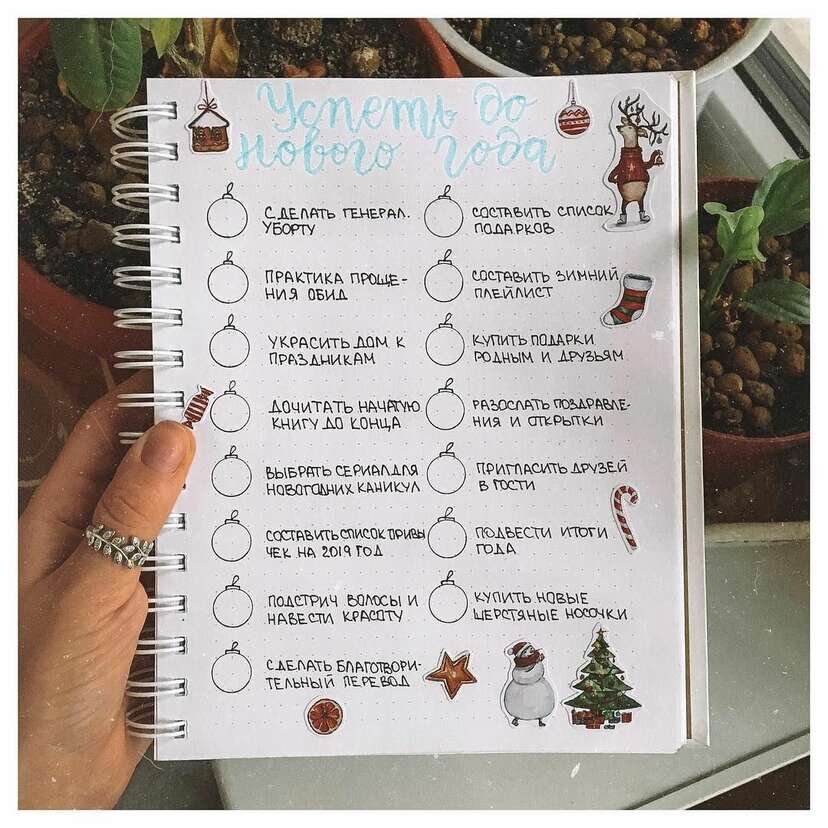 Успеть до
Нового года
СДЕЛАТЬ ГЕНЕРАЛ.
УБОРТУ
ПРАКТИКА ПРОЩЕ-
НИЯ ОБИД
УКРАСИТЬ ДОМ К
ПРАЗДНИКАМ
ДОЧИТАТЬ НАЧАТУЮ
КНИГУ ДО КОНЦА
ВЫБРАТЬ СЕРИАЛ ДЛЯ
НОВОГОДНИХ КАНИКУЛ
СОСТАВИТЬ СПИСОК ПРИВЫ
ЧЕК НА 2019 ГОД
ПОДСТРИЧ ВОЛОСЫ И
НАВЕСТИ КРАСОТУ
СДЕЛАТЬ БЛАГОТВОРИ-
ТЕЛЬНЫЙ ПЕРЕВОД
СОСТАВИТЬ СПИСОК
ПОДАРКОВ
СОСТАВИТЬ ЗИМНИЙ
ПЛЕЙЛИСТ
КУПИТЬ ПОДАРКИ
РОДНЫМ И ДРУЗЬЯМ
РАЗОСЛАТЬ ПОЗДРАВЛЕ-
НИЯ И ОТКРЫТКИ
ПРИГЛАСИТЬ ДРУЗЕЙ
В ГОСТИ
ПОДВЕСТИ ИТОГИ
ГОДА
КУПИТЬ НОВЫЕ
ШЕРСТЯНЫЕ НОСОЧКИ